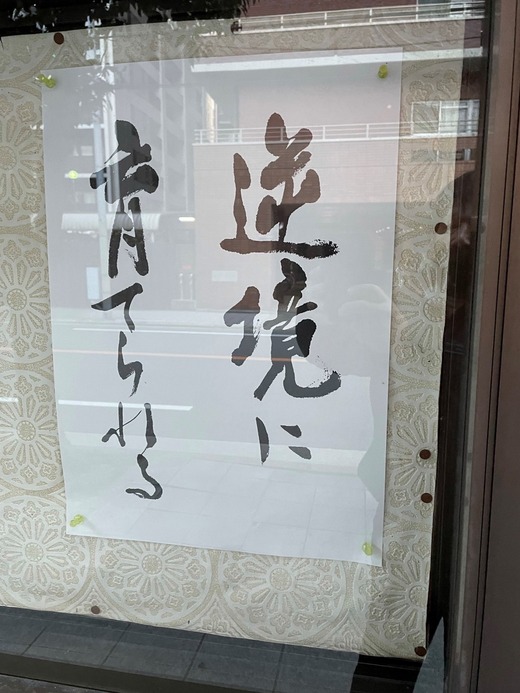 逆境に
育てられる